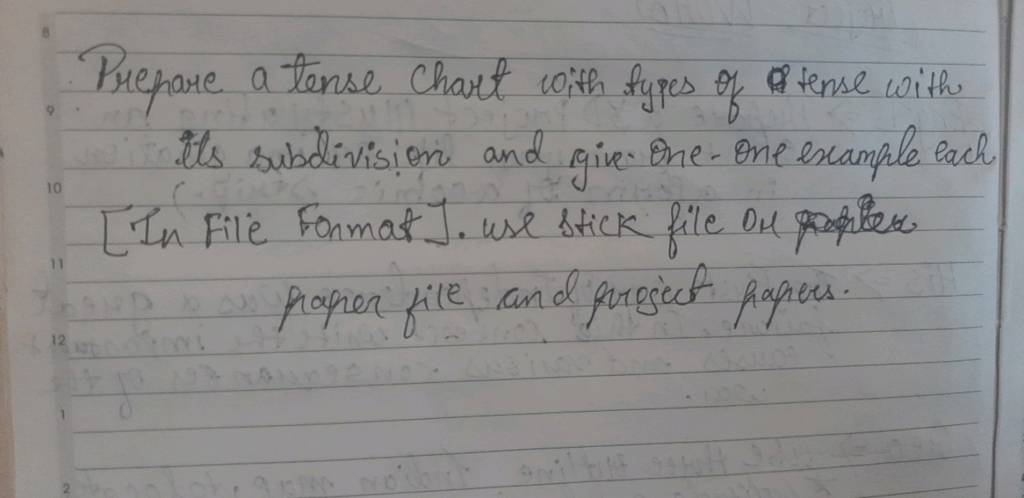 8
Prepare a tense chart with types of tense with
9
its subdivision and give one-one example each
10
[In File Format]. use stick file or
11
paper file and project papers.
12
1
2